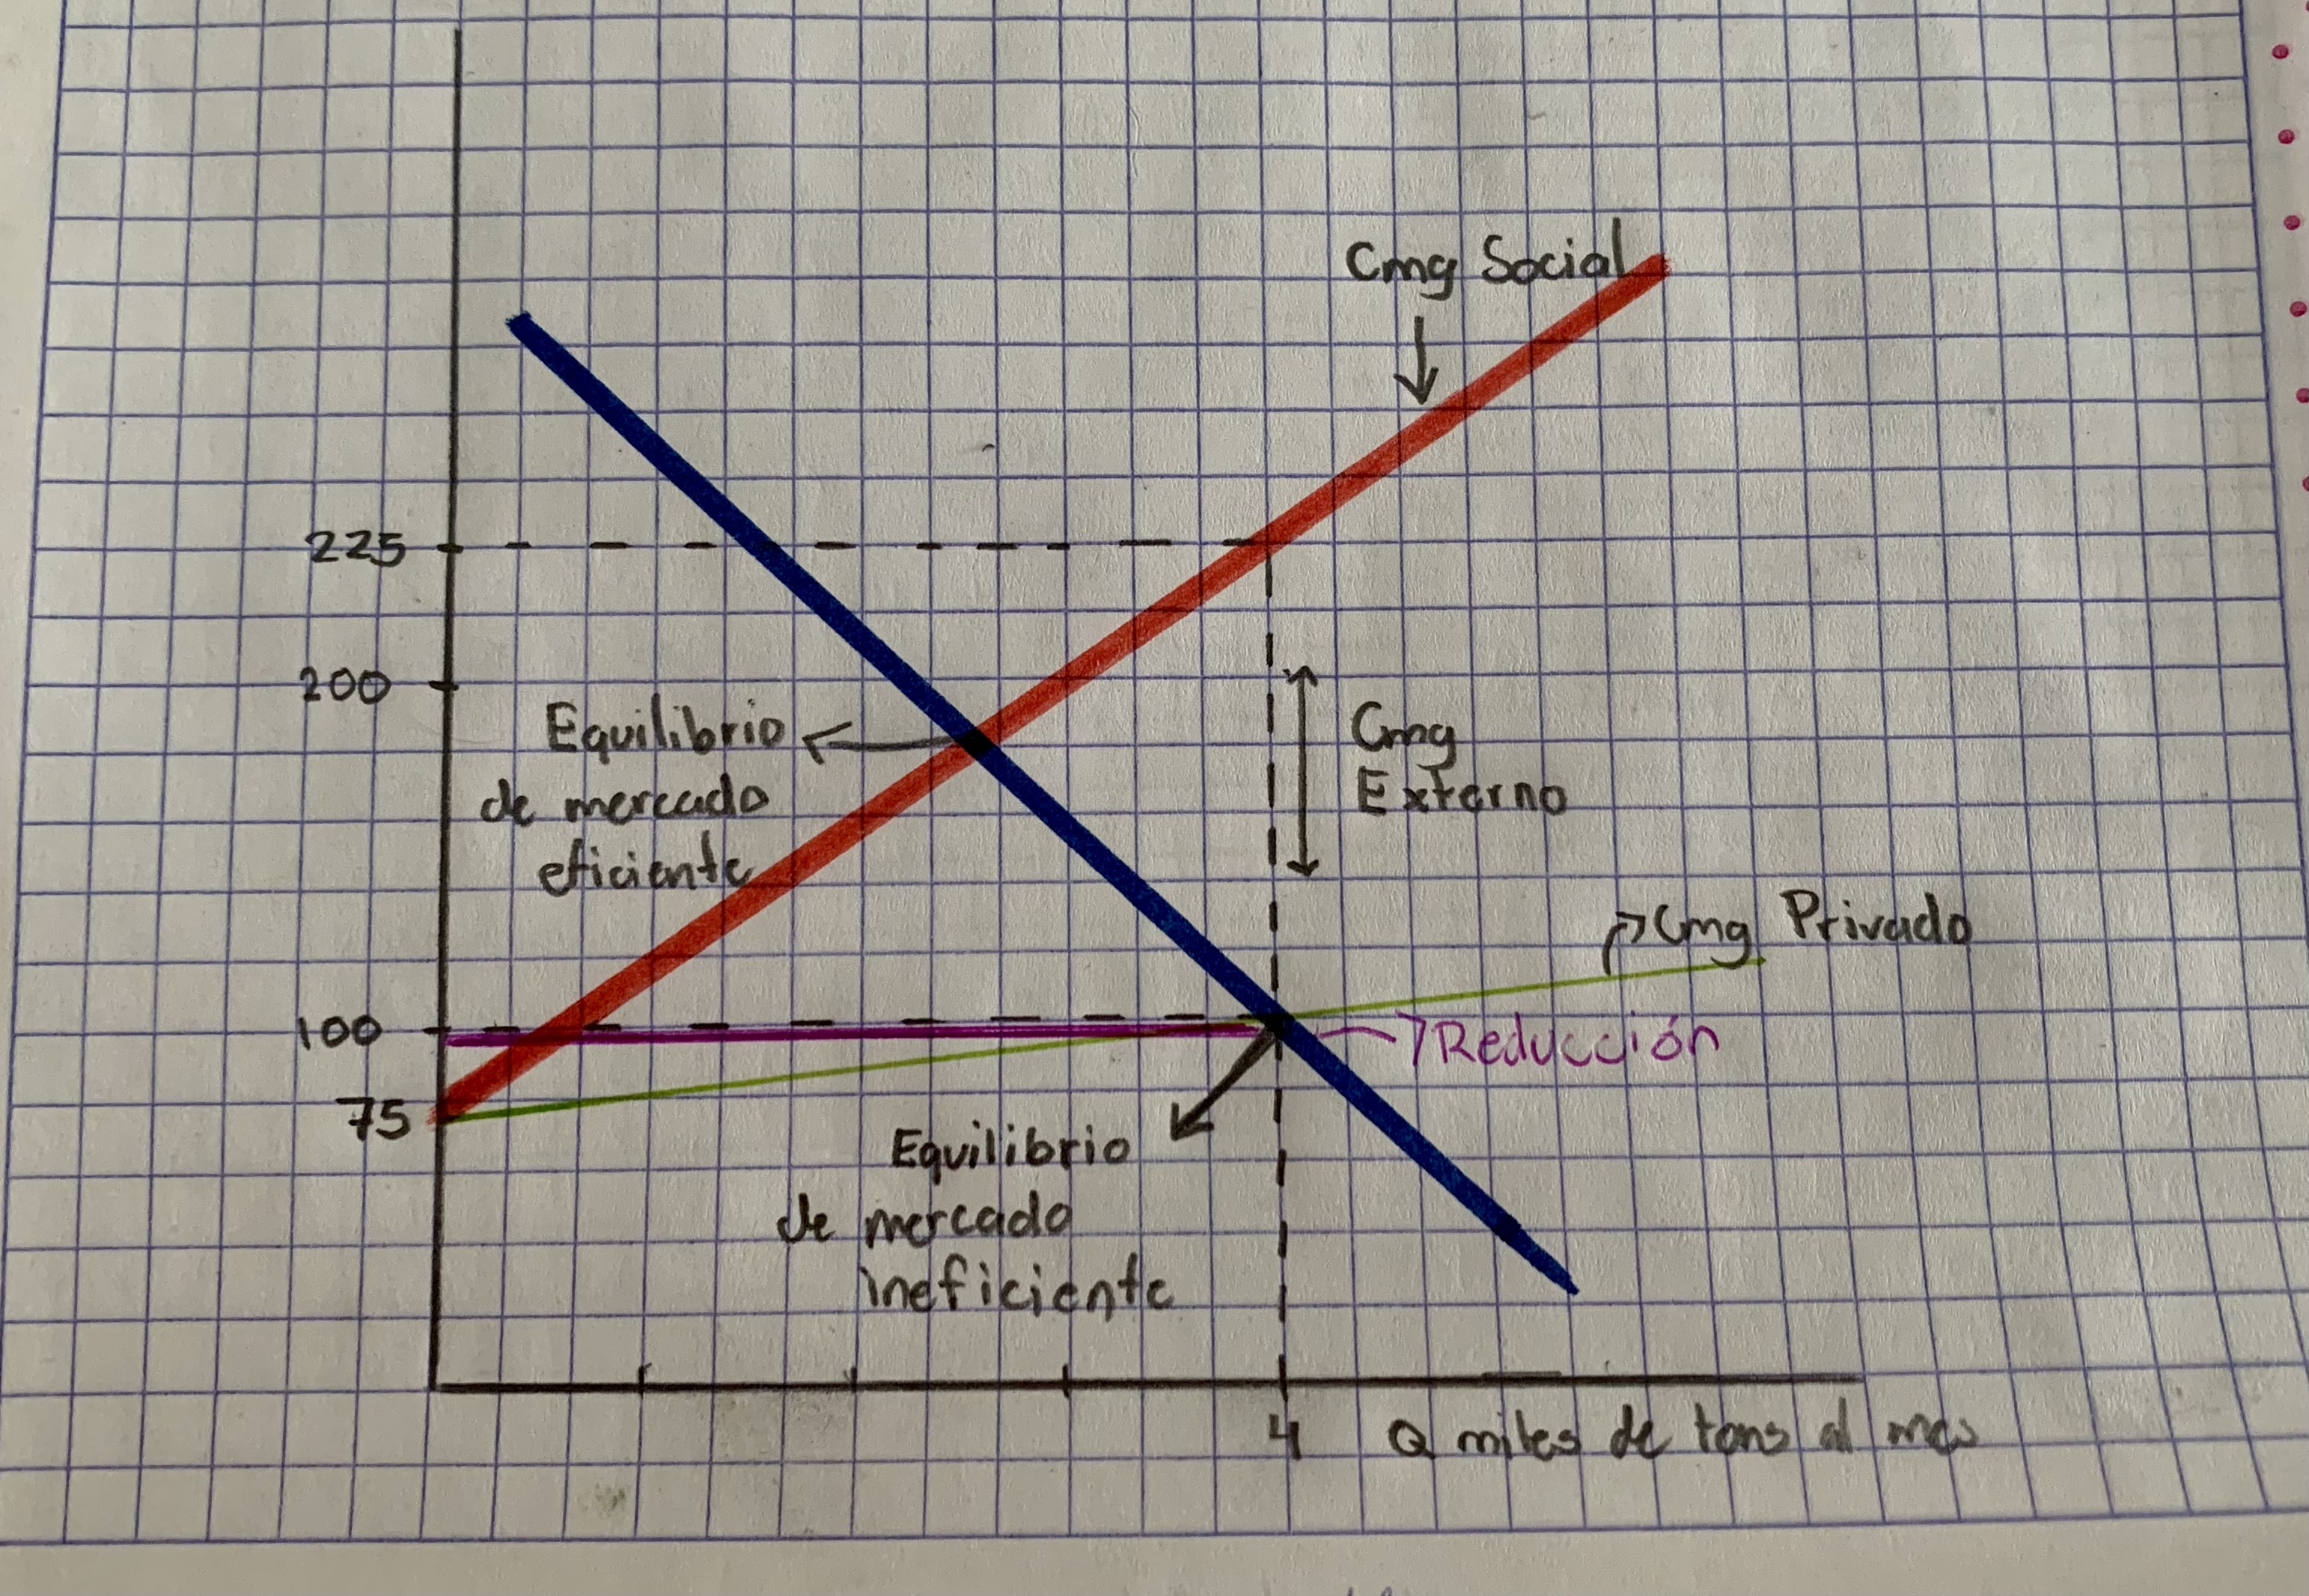 Cmg Social
225
200
Equilibrio
de mercado
eficiente
Cmg
Externo
Cmg Privado
100
Reducción
75
Equilibrio
de mercado
ineficiente
4 Q miles de tons al mes